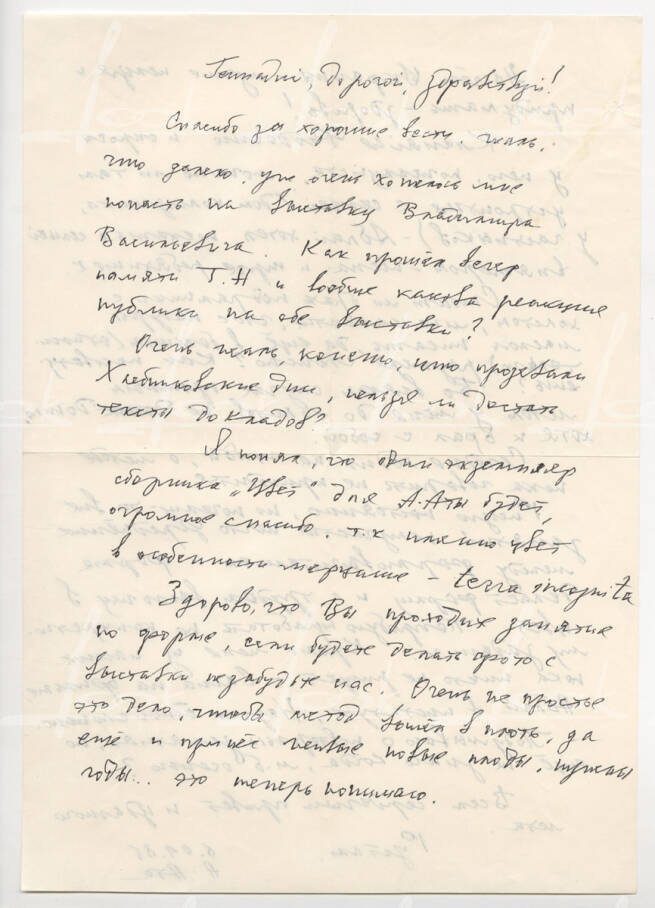 Геннадий, дорогой, здравствуй!
Спасибо за хорошие вести. Жаль,
что далеко. уж очень хотелось мне
попасть на выставку Владимира
Васильевича. Как прошёл вечер
памяти Т.Н. и вообще какова реакция
публики на обе выставки?
Очень жаль, конечно, что прозевали
Хлебниковские дни, нельзя ли достать
тексты докладов?
Я понял, что один экземпляр
сборника „Цвет" для А.Аты будет,
огромное спасибо. т.к именно цвет
в особенности – terra incognita
Здорово, что Вы проходите занятие
по форме, если будете делать фото с
выставки незабудьте нас. Очень не простое
это дело, чтобы метод вошёл в плоть, да
ещё и принёс первые новые плоды. нужны
годы... это теперь понимаю.